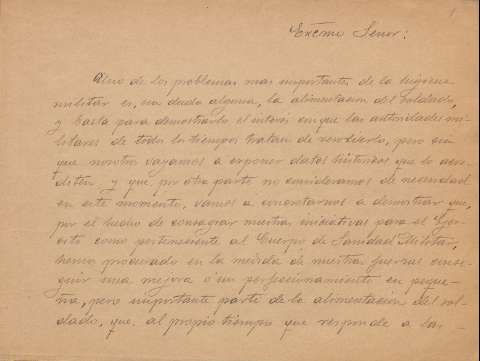 1
Excmo Señor:
Uno de los problemas mas importantes de la higiene
militar es, sin duda alguna, la alimentacion del soldado,
y basta para demostrarlo el interés en que las autoridades mi-
litares de todos los tiempos tratan de resolverlo, pero sin
que nosotros vayamos a exponer datos historicos que lo acre-
diten y que por otra parte no consideramos de necesidad
en este momento, vamos a concretarnos a demostrar que,
por el hecho de consagrar nuestras iniciativas para el Ejér-
cito como perteneciente al Cuerpo de Sanidad Militar,
hemos procurado en la medida de nuestras fuerzas conse-
guir una mejora ó un perfeccionamiento en peque-
ña, pero importante parte de la alimentación del sol-
dado, que al propio tiempo que responde a las